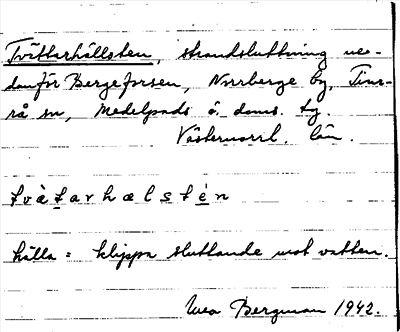 Tvättarhällsten, strandsluttning ne-
danför Bergeforsen, Norrberge by, Tim-
rå sn, Medelpads ö. doms. tg.
Västernorrl. län.
tvàtarhælstén
hälla = klippa sluttande mot vatten.
Bergman 1942.